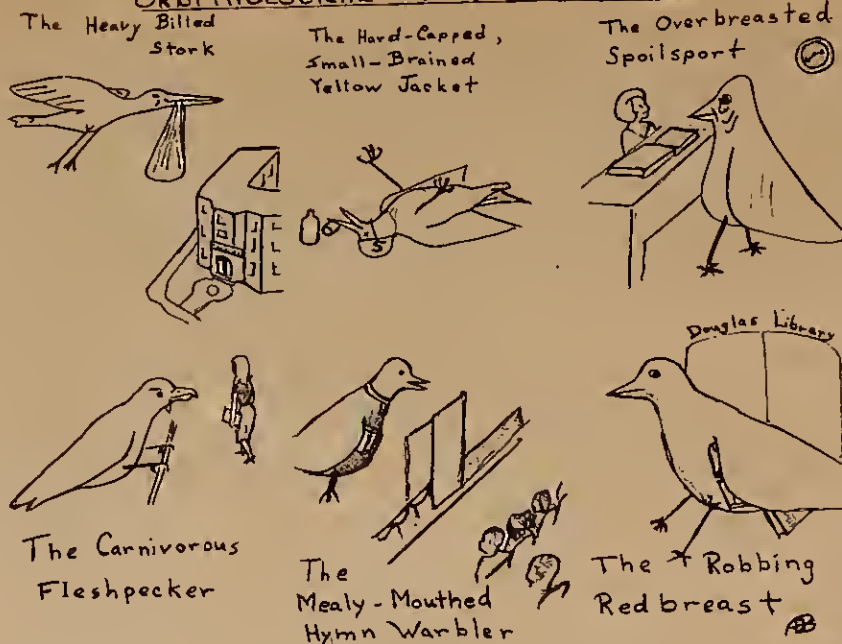 The Heavy Billed
Stork
The Hard-Capped,
Small-Brained
Yellow Jacket
The Overbreasted
Spoilsport
S
Douglas Library
The Carnivorous
Fleshpecker
The
Mealy-Mouthed
Hymn Warbler
The Robbing
Redbreast